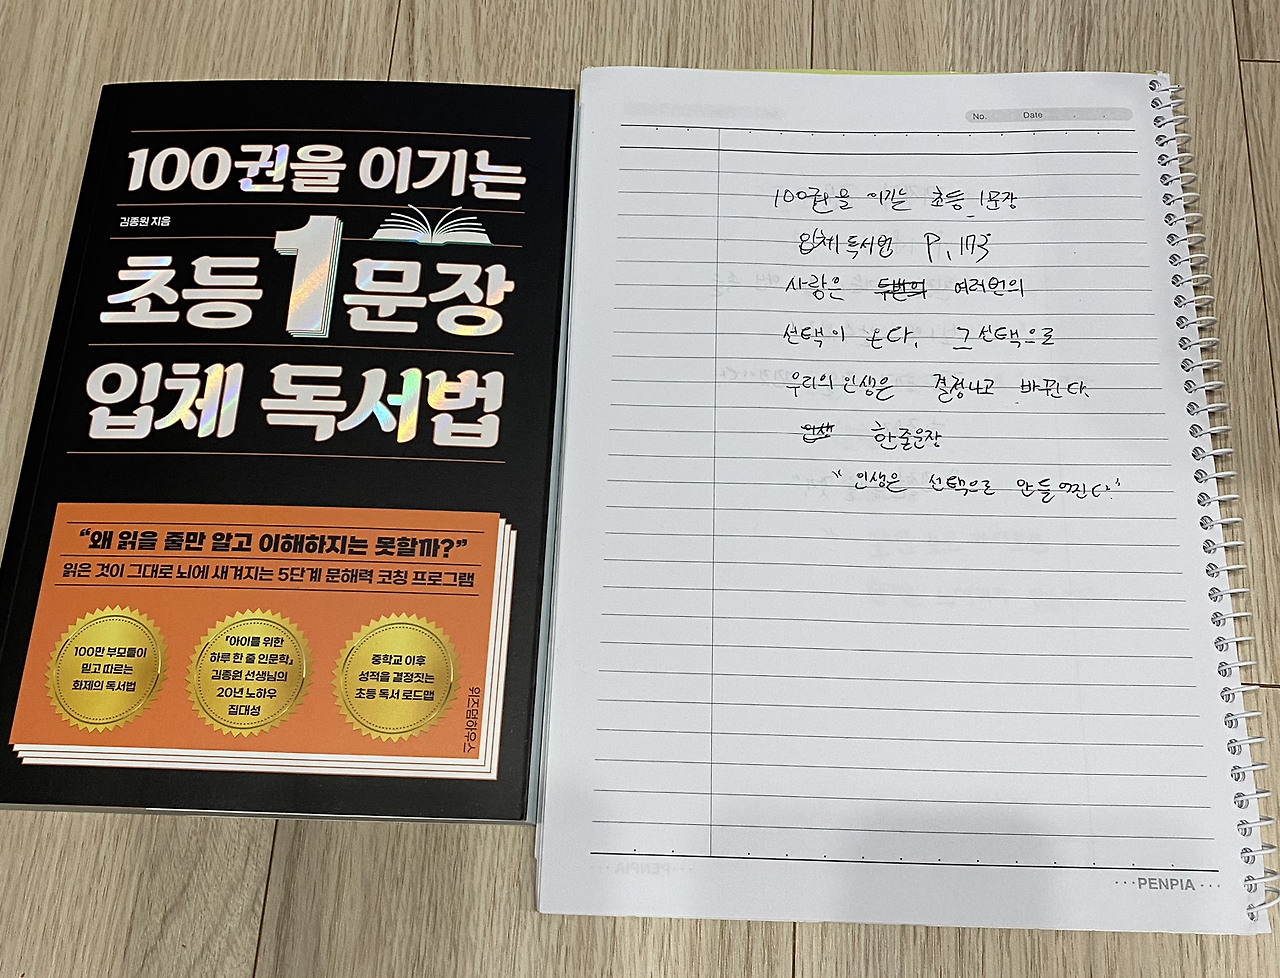 100권을 이기는
김종원 지음
초등 1 문장
입체 독서법
“왜 읽을 줄만 알고 이해하지는 못할까?”
읽은 것이 그대로 뇌에 새겨지는 5단계 문해력 코칭 프로그램
100만 부모들이
믿고 따르는
화제의 독서법
『아이를 위한
하루 한 줄 인문학』
김종원 선생님의
20년 노하우
집대성
중학교 이후
성적을 결정짓는
초등 독서 로드맵
위즈덤하우스
No. Date
100권을 이기는 초등 1문장
입체 독서법 P. 173
사랑은 두번의 여러번의
선택이 온다. 그 선택으로
우리의 인생은 결정나고 바뀐다.
인생 한줄문장
“인생은 선택으로 만들어진다.”
PENPIA